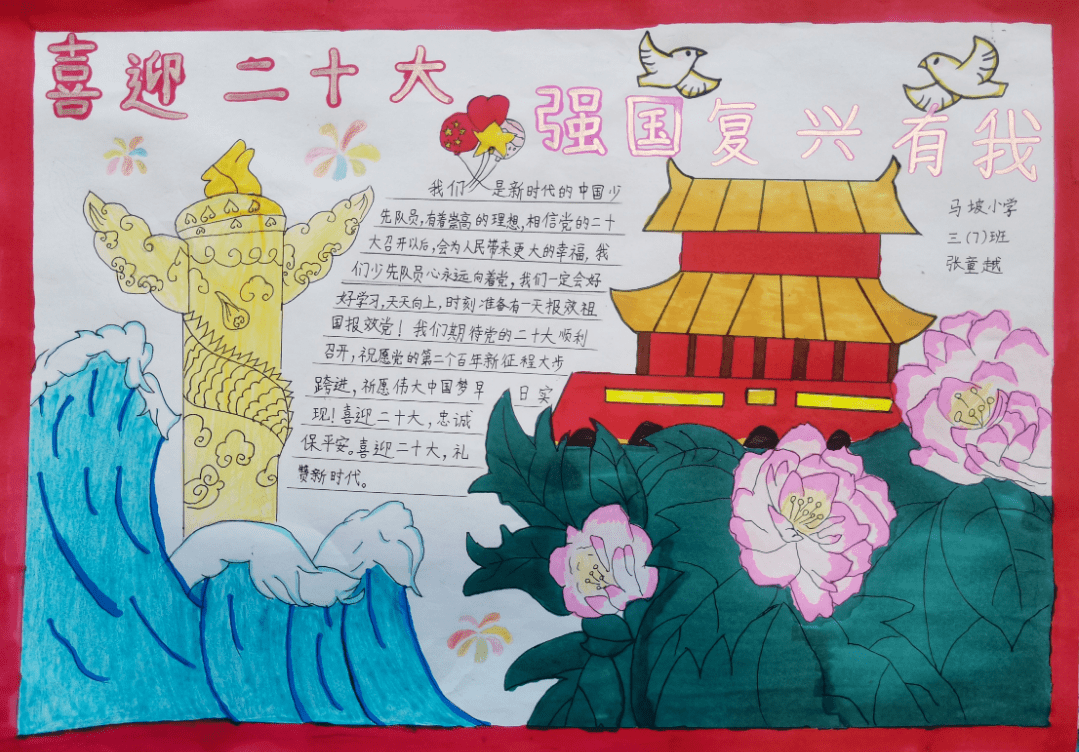 喜迎二十大
强国复兴有我
马坡小学
三(7)班
张童越
我们是新时代的中国少
先队员,有着崇高的理想,相信党的二十
大召开以后,会为人民带来更大的幸福,我
们少先队员心永远向着党,我们一定会好
好学习,天天向上,时刻准备有一天报效祖
国报效党!我们期待党的二十大顺利
召开,祝愿党的第二个百年新征程大步
跨进,祈愿伟大中国梦早日实
现!喜迎二十大,忠诚
保平安。喜迎二十大,礼
赞新时代。